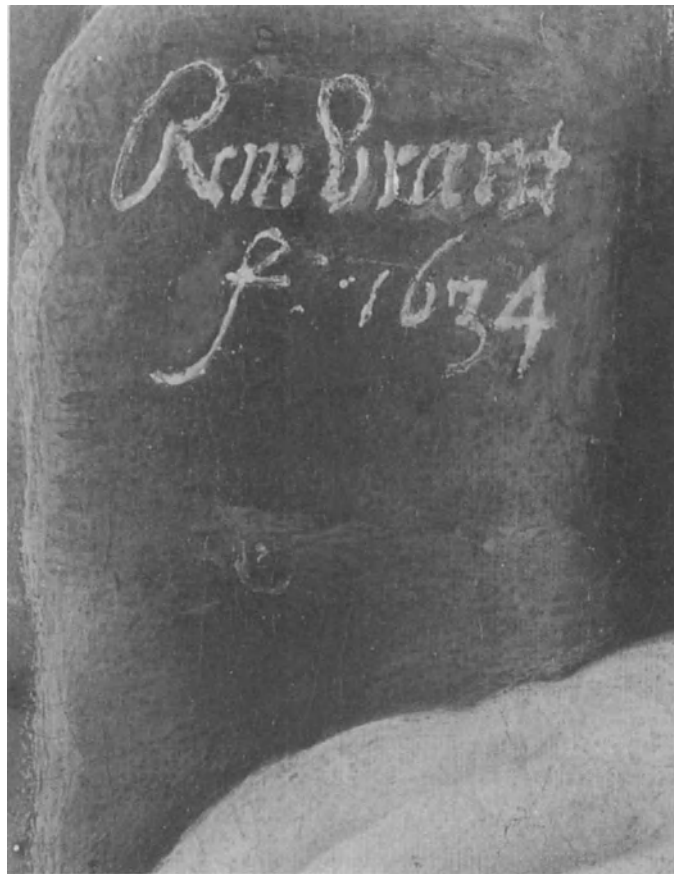 Rembrant
f: 1634